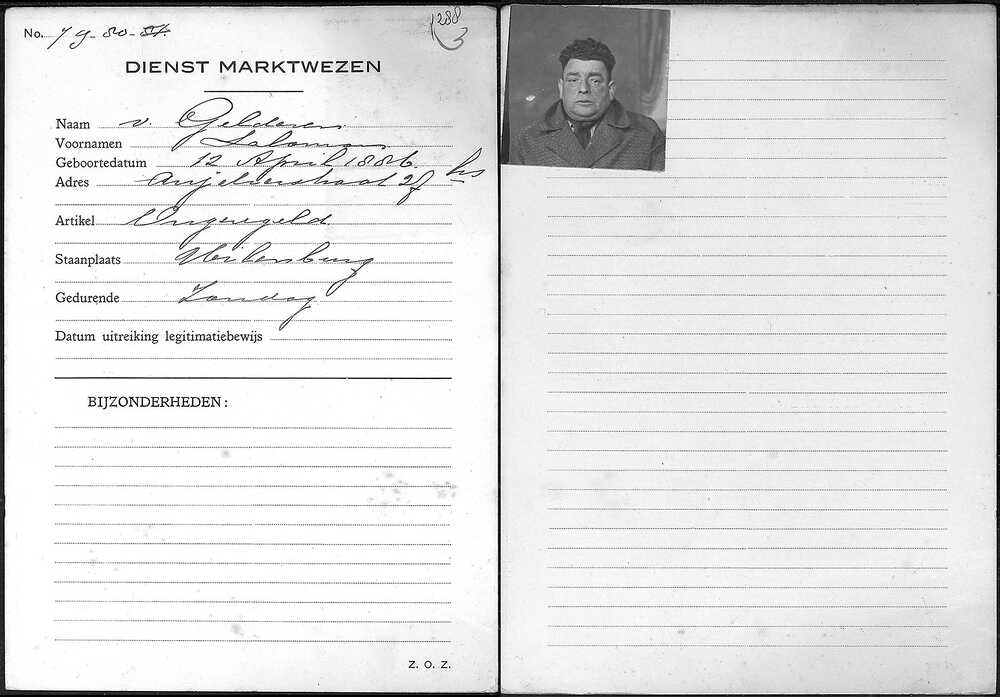 No. 79-80-81.
1288
3
DIENST MARKTWEZEN
Naam v. Gelderen
Voornamen Salomon
Geboortedatum 12 April 1886.
Adres Anjelierstraat 27 hs
Artikel Ongeregeld
Staanplaats Uilenburg
Gedurende Zondag
Datum uitreiking legitimatiebewijs
BIJZONDERHEDEN:
Z. O. Z.